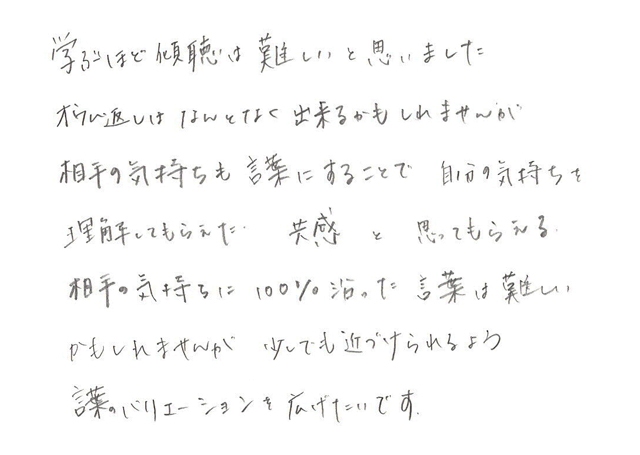 学ぶほど傾聴は難しいと思いました
オウム返しはなんとなく出来るかもしれませんが
相手の気持ちも言葉にすることで 自分の気持ちを
理解してもらえた 共感 と 思ってもらえる.
相手の気持ちに 100% 沿った 言葉は難しい
かもしれませんが 少しでも近づけられるよう
言葉のバリエーションを広げたいです.